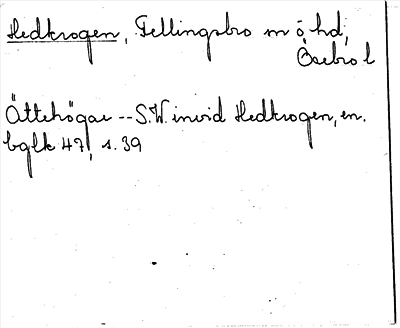 Hedkrogen, Fellingsbro m ö hd,
Örebro l
Ättehögar -- S.W. invid Hedkrogen, en.
bglk 47, s. 39